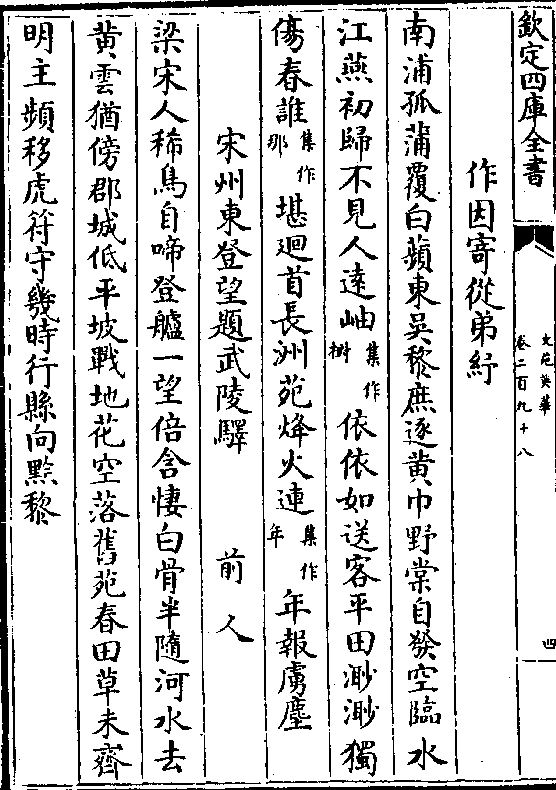 欽定四庫全書
文苑英華
卷二百九十八
四
作因寄從弟紓
南浦孤蒲覆白蘋東吳黎庶逐黃巾野棠自發空臨水
江燕初歸不見人遠岫集作樹依依如送客平田渺渺獨
傷春誰集作那堪迴首長洲苑烽火連集作年年報虜塵
宋州東登望題武陵驛 前人
梁宋人稀鳥自啼登艫一望倍含悽白骨半隨河水去
黃雲猶傍郡城低平坡戰地花空落舊苑春田草未齊
明主頻移虎符守幾時行縣向黔黎